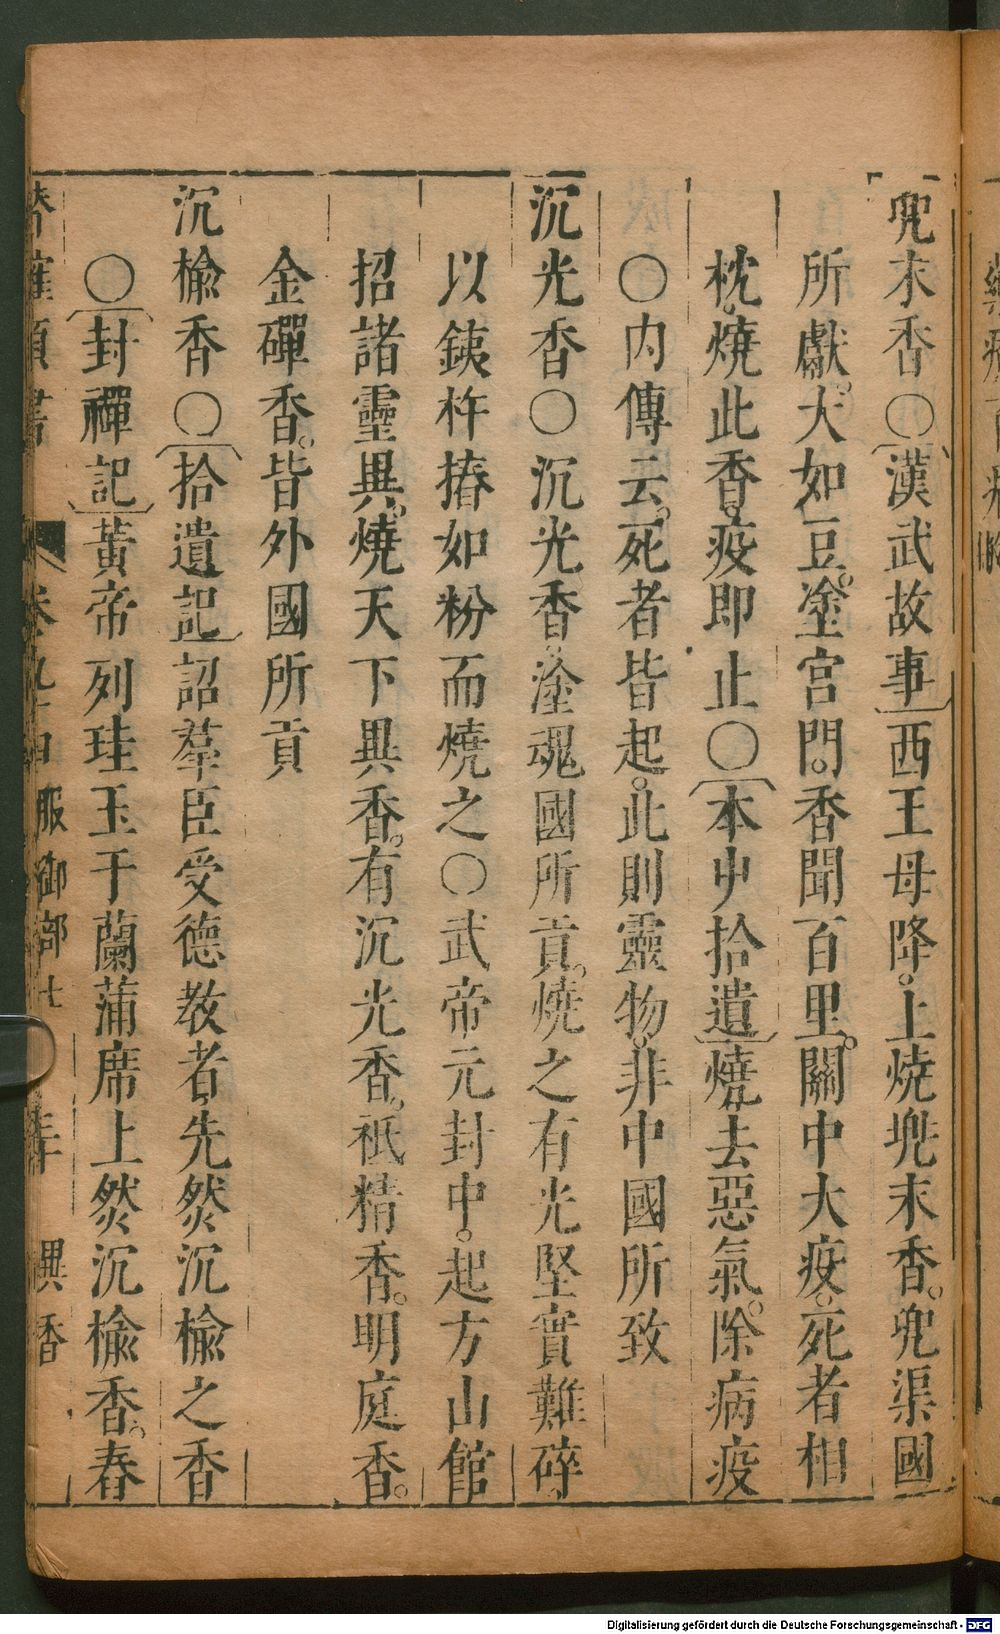 兜末香○漢武故事西王母降。上燒兠末香。兜渠國
所獻。大如豆。塗宮門。香聞百里。關中大疫。死者相
枕。燒此香。疫即止○本中拾遺燒去惡氣。除病疫
○内傳云。死者皆起。此則靈物。非中國所致
沉光香○沉光香。塗魂國所貢。燒之有光堅實難碎
以鐵杵摏如粉而燒之○武帝元封中。起方山館
招諸靈異。燒天下異香。有沉光香。祇精香。明庭香。
金磾香。皆外國所貢
沉榆香○拾遺記詔羣臣受德教者。先然沉榆之香
○封禪記黃帝列珪玉于蘭蒲席上然沉榆香。舂
服御部七
異香
Digitalisierung gefördert durch die Deutsche Forschungsgemeinschaft - DFG